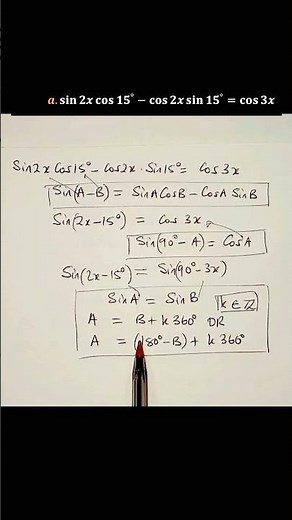 a. sin 2x cos 15° − cos 2x sin 15° = cos 3x
Sin2x Cos15° − Cos2x · Sin15° = Cos3x
Sin(A−B) = SinA CosB − CosA SinB
Sin(2x−15°) = Cos 3x
Sin(90°−A) = CosA
Sin(2x−15°) = Sin(90°−3x)
SinA = SinB k∈ℤ
A = B + k360° OR
A = (180°−B) + k360°